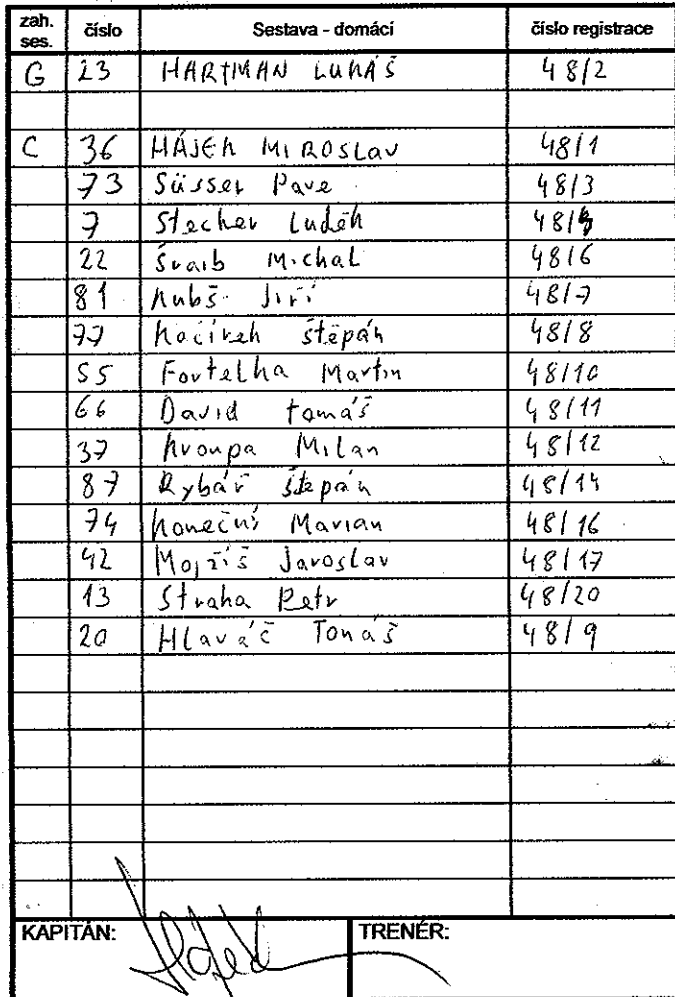 zah. ses. číslo Sestava - domácí číslo registrace
G 23 HARTMAN LUKÁŠ 48/2
C 36 HÁJEK MIROSLAV 48/1
73 Süsser Pave 48/3
7 Stecher Luděk
22 Švaib Michal 48/6
81 Kubš Jiří 48/7
77 Kočírek Štěpán 48/8
55 Fortelka Martin 48/10
66 David Tomáš 48/11
37 Kroupa Milan 48/12
87 Rybář Štěpán 48/14
74 Konečný Marian 48/16
42 Mojžíš Jaroslav 48/17
13 Straka Petr 48/20
20 Hlaváč Tomáš 48/9
KAPITÁN: Hájek TRENÉR: